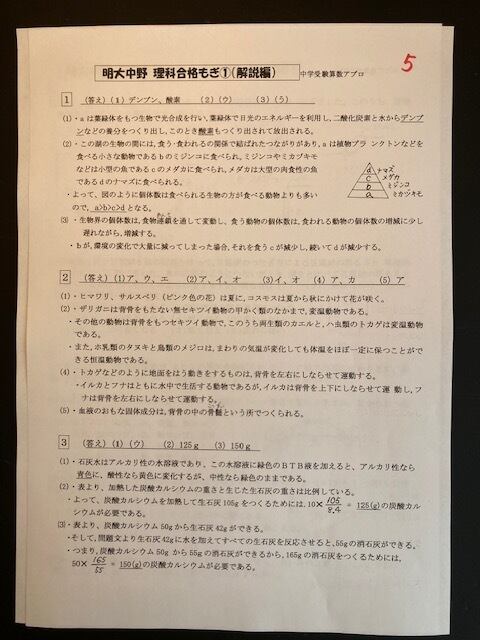 5
明大中野 理科合格もぎ①(解説編) 中学受験算数アプロ
1 (答え) (1) デンプン、酸素 (2) (ウ) (3) (う)
(1)・aは葉緑体をもつ生物で光合成を行い、葉緑体で日光のエネルギーを利用し、二酸化炭素と水からデンプ
ンなどの養分をつくり出し、このとき酸素もつくり出されて放出される。
(2)・この湖の生物の間には、食う・食われるの関係で結ばれたつながりがあり、aは植物プラ ンクトンなどを
食べる小さな動物であるbのミジンコに食べられ、ミジンコやミカヅキモ
などは小型の魚であるcのメダカに食べられ、メダカは大型の肉食性の魚
であるdのナマズに食べられる。
・よって、図のように個体数は食べられる生物の方が食べる動物よりも多い
ので、a>b>c>dとなる。
d ナマズ
c メダカ
b ミジンコ
a ミカヅキモ
(3)・生物界の個体数は、食物連鎖を通して変動し、食う動物の個体数は、食われる動物の個体数の増減に少し
遅れながら、増減する。
・bが、環境の変化で大量に減ってしまった場合、それを食うcが減少し、続いてdが減少する。
2 (答え) (1)ア、ウ、エ (2)ア、イ、オ (3)イ、オ (4) ア、カ (5) ア
(1)・ヒマワリ、サルスベリ(ピンク色の花)は夏に、コスモスは夏から秋にかけて花が咲く。
(2)・ザリガニは背骨をもたない無セキツイ動物の甲かく類のなかまで、変温動物である。
・その他の動物は背骨をもつセキツイ動物で、このうち両生類のカエルと、ハ虫類のトカゲは変温動物
である。
・また、ホ乳類のタヌキと鳥類のメジロは、まわりの気温が変化しても体温をほぼ一定に保つことがで
きる恒温動物である。
(4)・トカゲなどのように地面をはう動きをするものは、背骨を左右にしならせて運動する。
・イルカとフナはともに水中で生活する動物であるが、イルカは背骨を上下にしならせて運 動し、フ
ナは背骨を左右にしならせて運動する。
(5)・血液のおもな固体成分は、背骨の中の骨髄という所でつくられる。
3 (答え) (1) (ウ) (2) 125g (3) 150g
(1)・石灰水はアルカリ性の水溶液であり、この水溶液に緑色のBTB液を加えると、アルカリ性なら
青色に、酸性なら黄色に変化するが、中性なら緑色のままである。
(2)・表より、加熱した炭酸カルシウムの重さと生じた生石灰の重さは比例している。
・よって、炭酸カルシウムを加熱して生石灰105gをつくるためには、10×105/8.4 = 125(g)の炭酸カル
シウムが必要である。
(3)・表より、炭酸カルシウム50gから生石灰42gができる。
・そして、問題文より生石灰42gに水を加えてすべての生石灰を反応させると、55gの消石灰ができる。
・つまり、炭酸カルシウム50gから55gの消石灰ができるから、165gの消石灰をつくるためには、
50×165/55 = 150(g)の炭酸カルシウムが必要である。